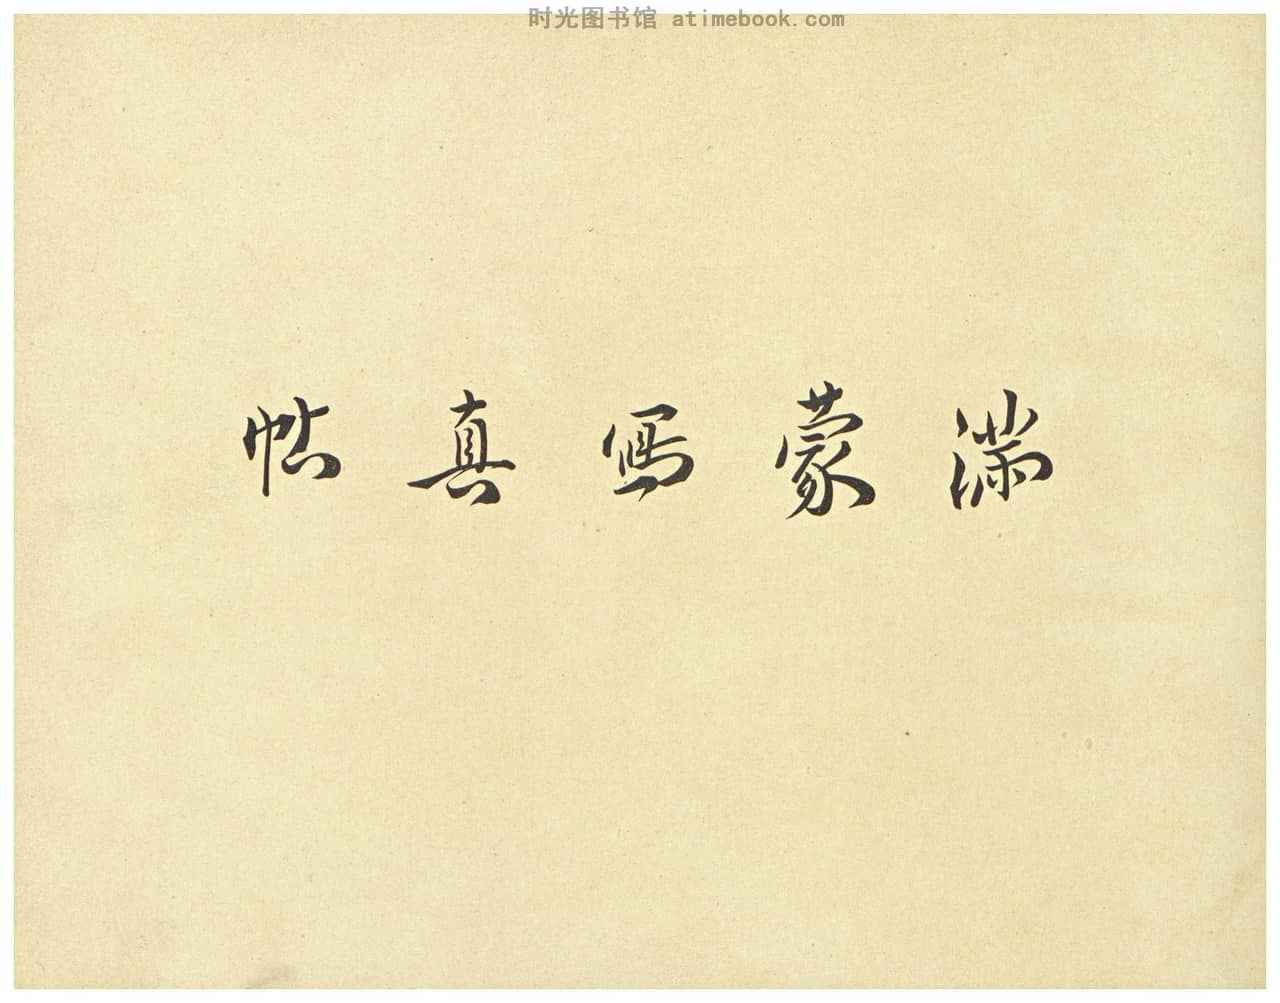 时光图书馆 atimebook.com
満蒙寫真帖